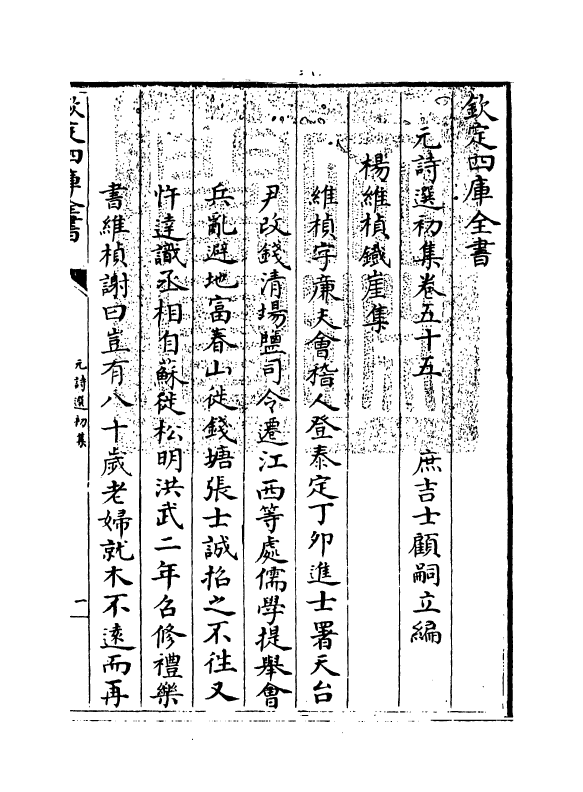 欽定四庫全書
元詩選初集卷五十五　　庶吉士顧嗣立編
楊維楨鐵崖集
維楨字廉夫會稽人登泰定丁卯進士署天台
尹改錢清場鹽司令遷江西等處儒學提舉會
兵亂避地富春山徙錢塘張士誠招之不徃又
忤達識丞相自蘇徙松明洪武二年召修禮樂
書維楨謝曰豈有八十歲老婦就木不遠而再
欽定四庫全書
元詩選初集
一